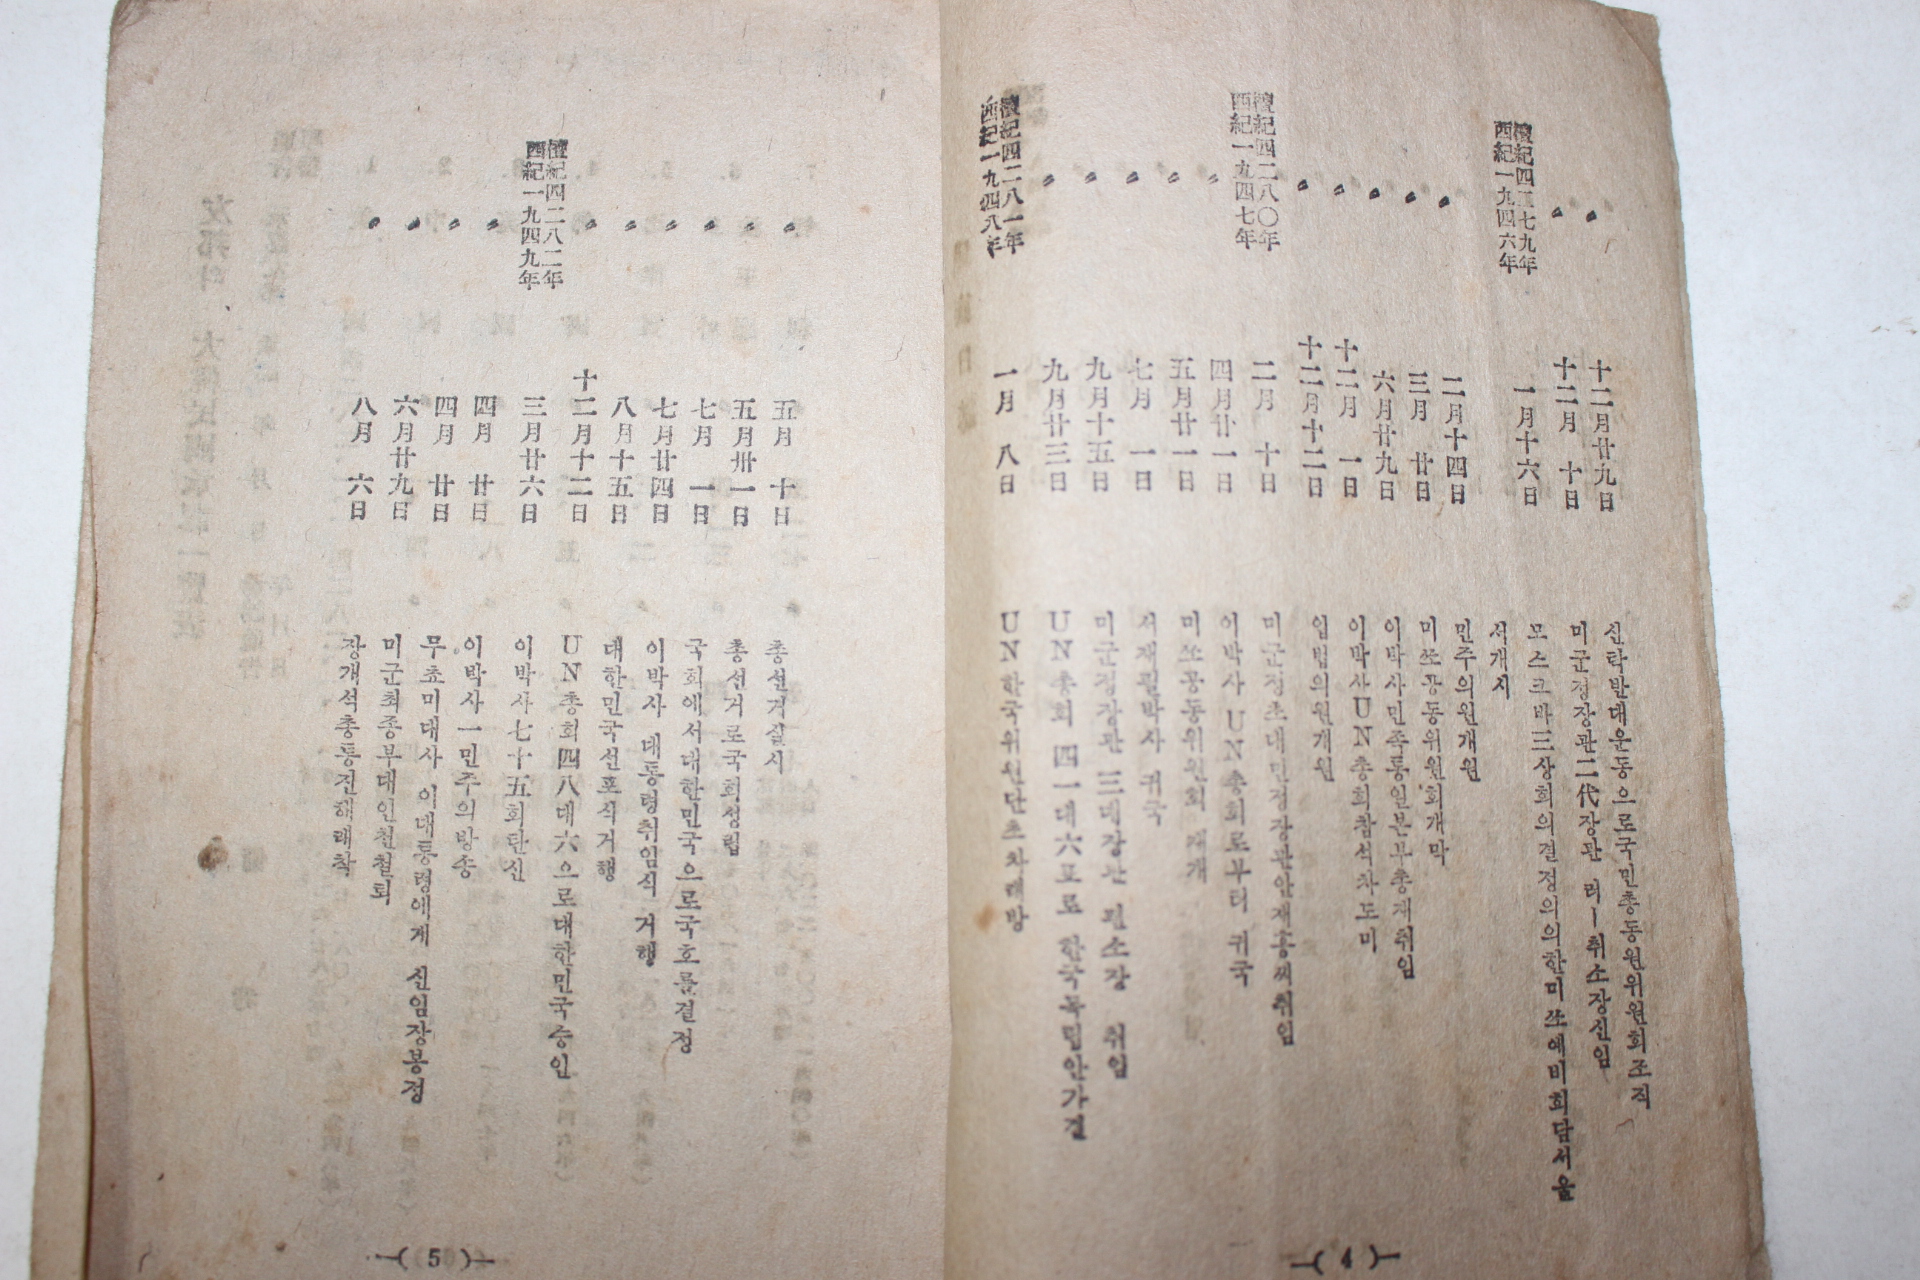 〃 十二月廿九日 신탁반대운동으로국민총동원위원회조직
〃 十二月 十日 미군정장관二代장관 러ー취소장신임
檀紀四二七九年
西紀一九四六年
一月十六日 모스크바三상회의결정의의한미쏘예비회담서울
서개시
〃 二月十四日 민주의원개원
〃 三月 廿日 미쏘공동위원회개막
〃 六月廿九日 이박사민족통일본부총재취임
〃 十二月 一日 이박사UN총회참석차도미
〃 十二月十二日 입법의원개원
檀紀四二八〇年
西紀一九四七年
二月 十日 미군정초대민정장관안재홍씨취임
〃 四月廿一日 이박사 UN총회로부터 귀국
〃 五月廿一日 미쏘공동위원회 재개
〃 七月 一日 서재필박사 귀국
〃 九月十五日 미군정장관 三대장관 띤소장 취임
〃 九月廿三日 UN총회 四一대六표로 한국독립안가결
檀紀四二八一年
西紀一九四八年
一月 八日 UN한국위원단초차래방
—( 4 )—
〃 五月 十日 총선거실시
〃 五月卅一日 총선거로국회성립
〃 七月 一日 국회에서대한민국으로국호를결정
〃 七月廿四日 이박사 대통령취임식 거행
〃 八月十五日 대한민국선포식거행
〃 十二月十二日 UN총회四八대六으로대한민국승인
檀紀四二八二年
西紀一九四九年
三月廿六日 이박사七十五회탄신
〃 四月 廿日 이박사一민주의방송
〃 四月 廿日 무쵸미대사 이대통령에게 신임장봉정
〃 六月廿九日 미군최종부대인천철퇴
〃 八月 六日 장개석총통진해래착
—( 5 )—